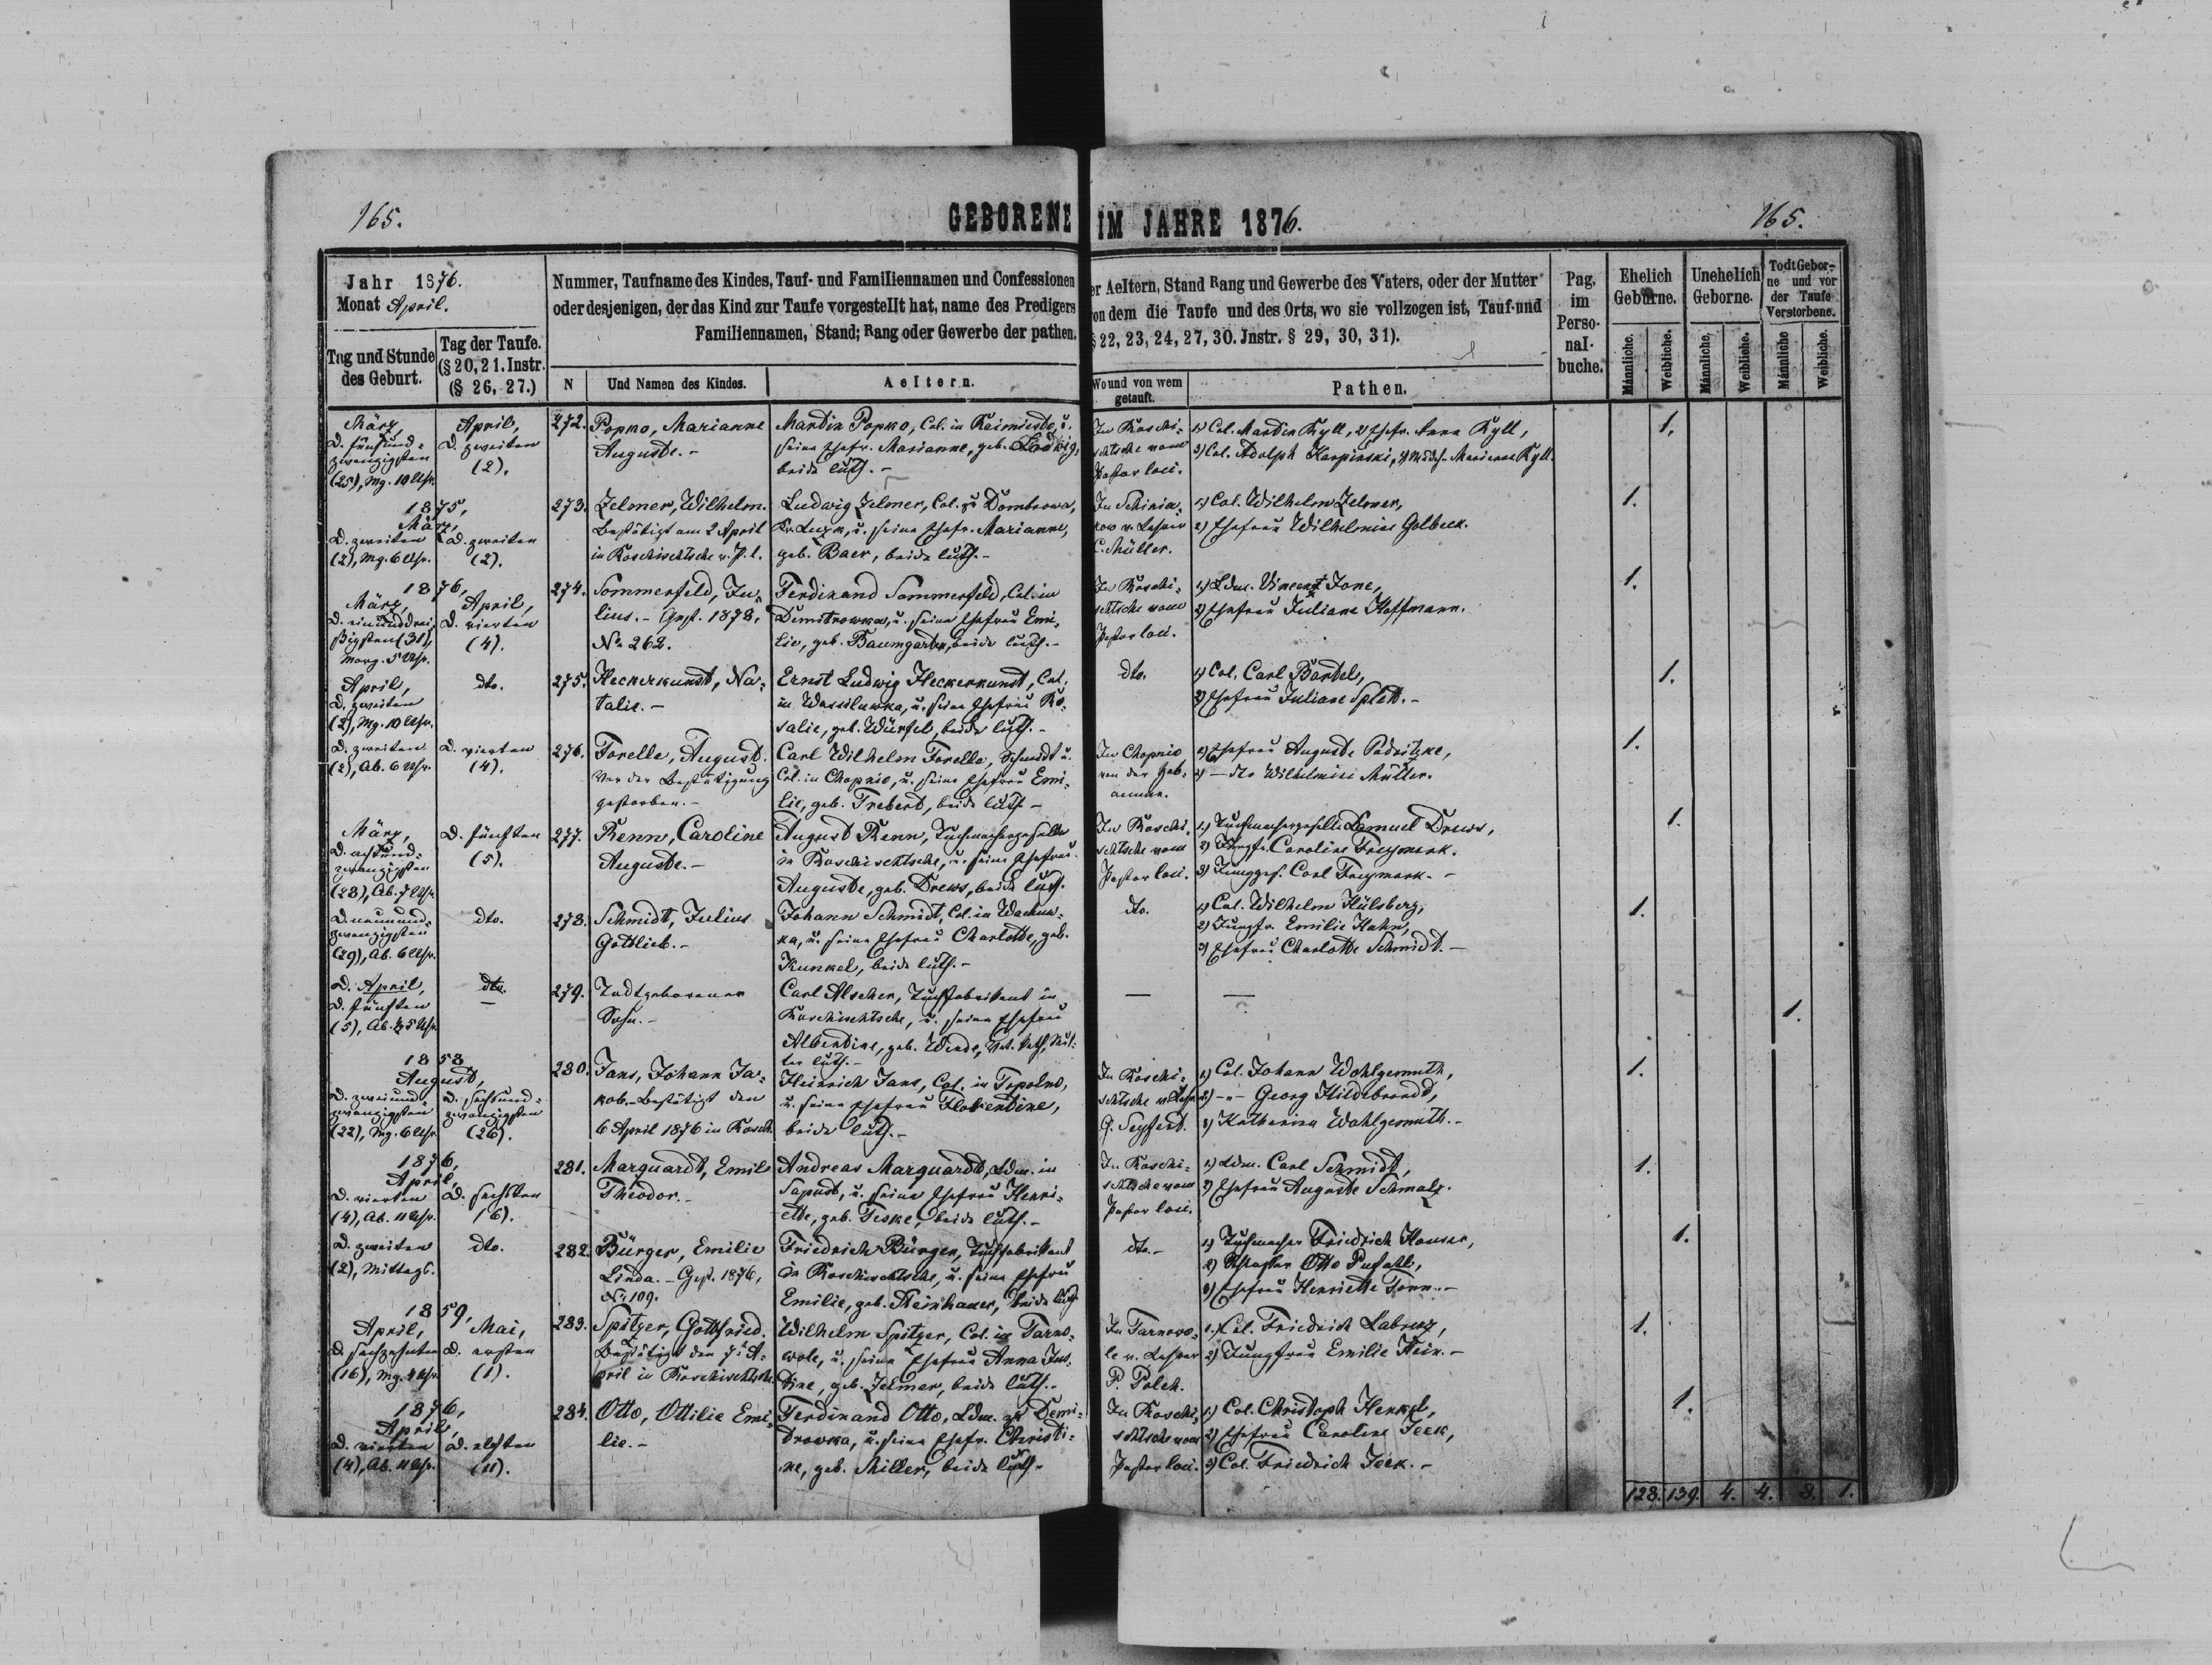 165.
GEBORENE IM JAHRE 1876.
165.
Jahr 1876.
Monat April.
Tag und Stunde des Geburt.
Tag der Taufe. (§ 20, 21. Instr. (§ 26, 27.)
Nummer, Taufname des Kindes, Tauf- und Familiennamen und Confessionen
oder desjenigen, der das Kind zur Taufe vorgestellt hat, name des Predigers
Familiennamen, Stand; Rang oder Gewerbe der pathen.
er Aeltern, Stand Rang und Gewerbe des Vaters, oder der Mutter
von dem die Taufe und des Orts, wo sie vollzogen ist, Tauf-und
§ 22, 23, 24, 27, 30. Jnstr. § 29, 30, 31).
N
Und Namen des Kindes.
Aeltern.
Wo und von wem getauft.
Pathen.
Pag. im Perso-nal-buche.
Ehelich Geburne.
Unehelich Geborne.
Todt Gebor-ne und vor der Taufe Verstorbene.
Männliche. Weibliche. Männliche. Weibliche. Männliche Weibliche.
März, D. fünfund-zwanzigsten (25), Mg. 10 Uhr.
April, D. zweiten (2).
272. Popko, Marianne
Auguste.-
Martin Popko, Col. in Raimieste, u.
seine Ehefr. Marianne, geb. Ludwig,
beide luth.-
In Roschi-
schtsche vom
Pastor loci.
1) Col. Martin Kyll, 2) Ehefr. Anna Kyll,
3) Col. Adolph Karpinski, 4) Mädch. Marianne Kyll.
1.
1875,
März,
D. zweiten (2), Mg. 6 Uhr.
D. zweiten (2).
273. Zelmer, Wilhelm.
Bestätigt am 2 April
in Roschischtsche v. P. l.
Ludwig Zelmer, Col. zu Dombrowa,
Kr. Luzk, u. seine Ehefr. Marianne,
geb. Baer, beide luth.-
In Schinia-
kow v. Lehrer
C. Müller.
1) Col. Wilhelm Zelmer,
2) Ehefrau Wilhelmine Golbeck.
1.
1876,
März, D. einunddrei-ßigsten (31), Morg. 5 Uhr.
April, D. vierten (4).
274. Sommerfeld, Ju-
lius.- Gest. 1878,
No 262.
Ferdinand Sommerfeld, Col. in
Dimitrowka, u. seine Ehefrau Emi-
lie, geb. Baumgarten, beide luth.-
In Roschi-
schtsche vom
Pastor loci.
1) Ldm. Vincent Jone,
2) Ehefrau Juliane Hoffmann.
1.
April, D. zweiten (2), Mg. 10 Uhr.
dto.
275. Heckerkunst, Na-
talie.-
Ernst Ludwig Heckerkunst, Col.
in Wassiluwka, u. seine Ehefrau Ro-
salie, geb. Würfel, beide luth.-
dto.
1) Col. Carl Bartel,
2) Ehefrau Juliane Splett.-
1.
D. zweiten (2), Ab. 6 Uhr.
D. vierten (4).
276. Forelle, August.
Vor der Bestätigung
gestorben.-
Carl Wilhelm Forelle, Schmidt u.
Col. in Chopnio, u. seine Ehefrau Emi-
lie, geb. Trebert, beide luth-
In Chopnio
von der Heb-
amme.
1) Ehefrau Auguste Padritzke,
2) - dto Wilhelmine Müller.
1.
März, D. achtund-zwanzigsten (28), Ab. 7 Uhr.
D. fünften (5).
277. Renn, Caroline
Auguste.-
August Renn, Tuchmachergeselle
in Roschischtsche, u. seine Ehefrau
Auguste, geb. Drews, beide luth.
In Roschi-
schtsche vom
Pastor loci.
1) Tuchmachergeselle Samuel Drews,
2) Jungfr. Caroline Freymark.
3) Junggef. Carl Freymark.-
1.
D. neunund-zwanzigsten (29), Ab. 6 Uhr.
dto.
278. Schmidt, Julius
Gottlieb.-
Johann Schmidt, Col. in Watkuw-
ka, u. seine Ehefrau Charlotte, geb.
Kunkel, beide luth.-
dto.
1) Col. Wilhelm Hülsberg,
2) Jungfr. Emilie Hahn,
3) Ehefrau Charlotte Schmidt.-
1.
D. April, D. fünften (5), Ab. 5 Uhr.
dto.
279. Todtgeborener
Sohn.-
Carl Alscher, Tuchfabrikant in
Roschischtsche, u. seine Ehefrau
Albertine, geb. Wende, Vat. kath., Mut-
ter luth.-
1.
1858
August,
D. zweiund-zwanzigsten (22), Mg. 6 Uhr.
D. sechsund-zwanzigsten (26).
280. Jans, Johann Ja-
kob.- Bestätigt den
6 April 1876 in Rosch.
Heinrich Jans, Col. in Topolno,
u. seine Ehefrau Florentine,
beide luth.-
In Roschi-
schtsche v. Lehr.
G. Seyferd.
1) Col. Johann Wohlgemuth,
2) - " - Georg Hildebrandt,
3) Katharina Wohlgemuth.-
1.
1876,
April,
D. vierten (4), Ab. 11 Uhr.
D. sechsten (6).
281. Marquardt, Emil
Theodor.-
Andreas Marquardt, Ldm. in
Sapust, u. seine Ehefrau Henri-
ette, geb. Teske, beide luth.-
In Roschi-
schtsche vom
Pastor loci.
1) Ldm. Carl Schmidt,
2) Ehefrau Auguste Schmalz.
1.
D. zweiten (2), Mittags.
dto.
282. Bürger, Emilie
Linda.- Gest. 1876,
No 109.
Friedrich Bürger, Tuchfabrikant
in Roschischtsche, u. seine Ehefrau
Emilie, geb. Steinhauer, beide luth
dto.-
1) Tuchmacher Friedrich Hauser,
2) Otto Pufahl,
3) Ehefrau Henriette Tonn.-
1.
1859,
April, D. sechzehnten (16), Mg. 4 Uhr.
Mai, D. ersten (1).
283. Spitzer, Gottfried.
Bestätigt den 7. A-
pril in Roschischtsche.
Wilhelm Spitzer, Col. in Tarno-
wole, u. seine Ehefrau Anna Jus-
tine, geb. Zelmer, beide luth.-
In Tarnowo-
le v. Lehrer
P. Polch.
1) Col. Friedrich Labrenz,
2) Jungfrau Emilie Hein.-
1.
1876,
April,
D. vierten (4), Ab. 11 Uhr.
D. elften (11).
284. Otto, Ottilie Emi-
lie.-
Ferdinand Otto, Ldm. zu Demi-
trowka, u. seine Ehefr. Christi-
ne, geb. Miller, beide luth.-
In Roschi-
schtsche vom
Pastor loci.
1) Col. Christoph Henkel,
2) Ehefrau Caroline Jeek,
3) Col. Friedrich Jeek.-
1.
128. 139. 4. 4. 8. 1.